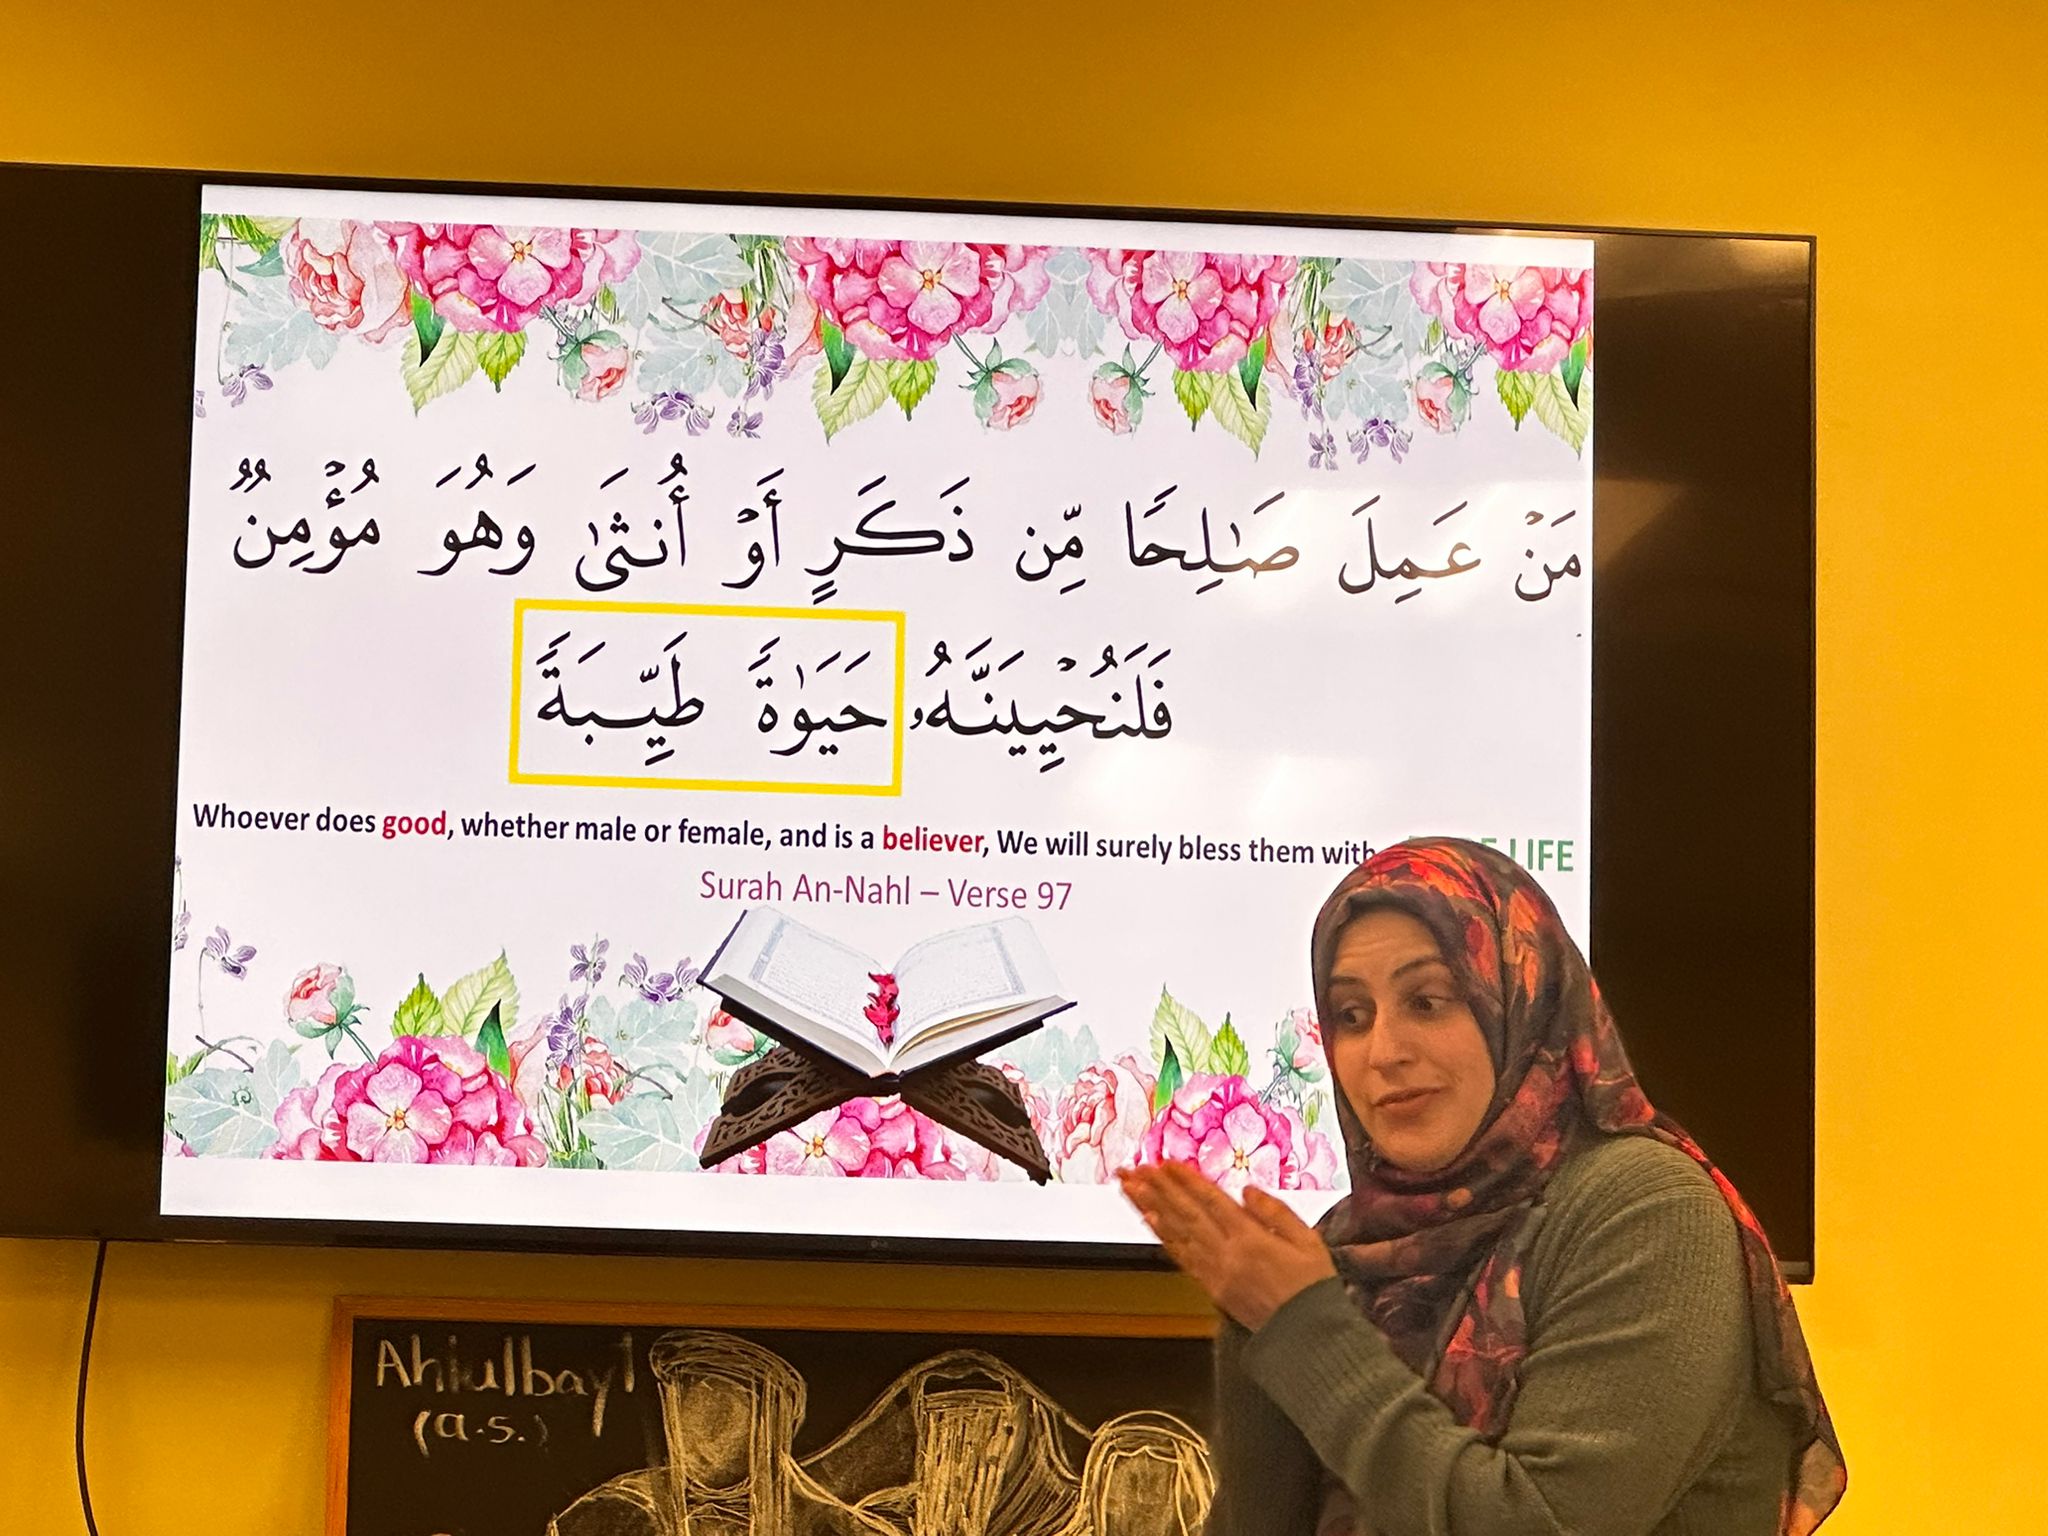 مَنْ عَمِلَ صَـٰلِحًا مِّن ذَكَرٍ أَوْ أُنثَىٰ وَهُوَ مُؤْمِنٌ
فَلَنُحْيِيَنَّهُۥ حَيَوٰةً طَيِّبَةً
Whoever does good, whether male or female, and is a believer, We will surely bless them with LIFE
Surah An-Nahl – Verse 97
Ahlulbayt
(a.s.)